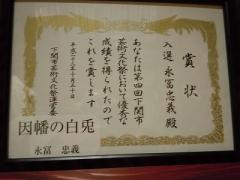 賞状
入選 永冨忠義殿
あなたは第四回下関市
芸術文化祭において優秀な
成績を得られたので
これを賞します
平成二十五年十月五十日
下関市芸術文化祭運営委
因幡の白兎
永冨 忠義